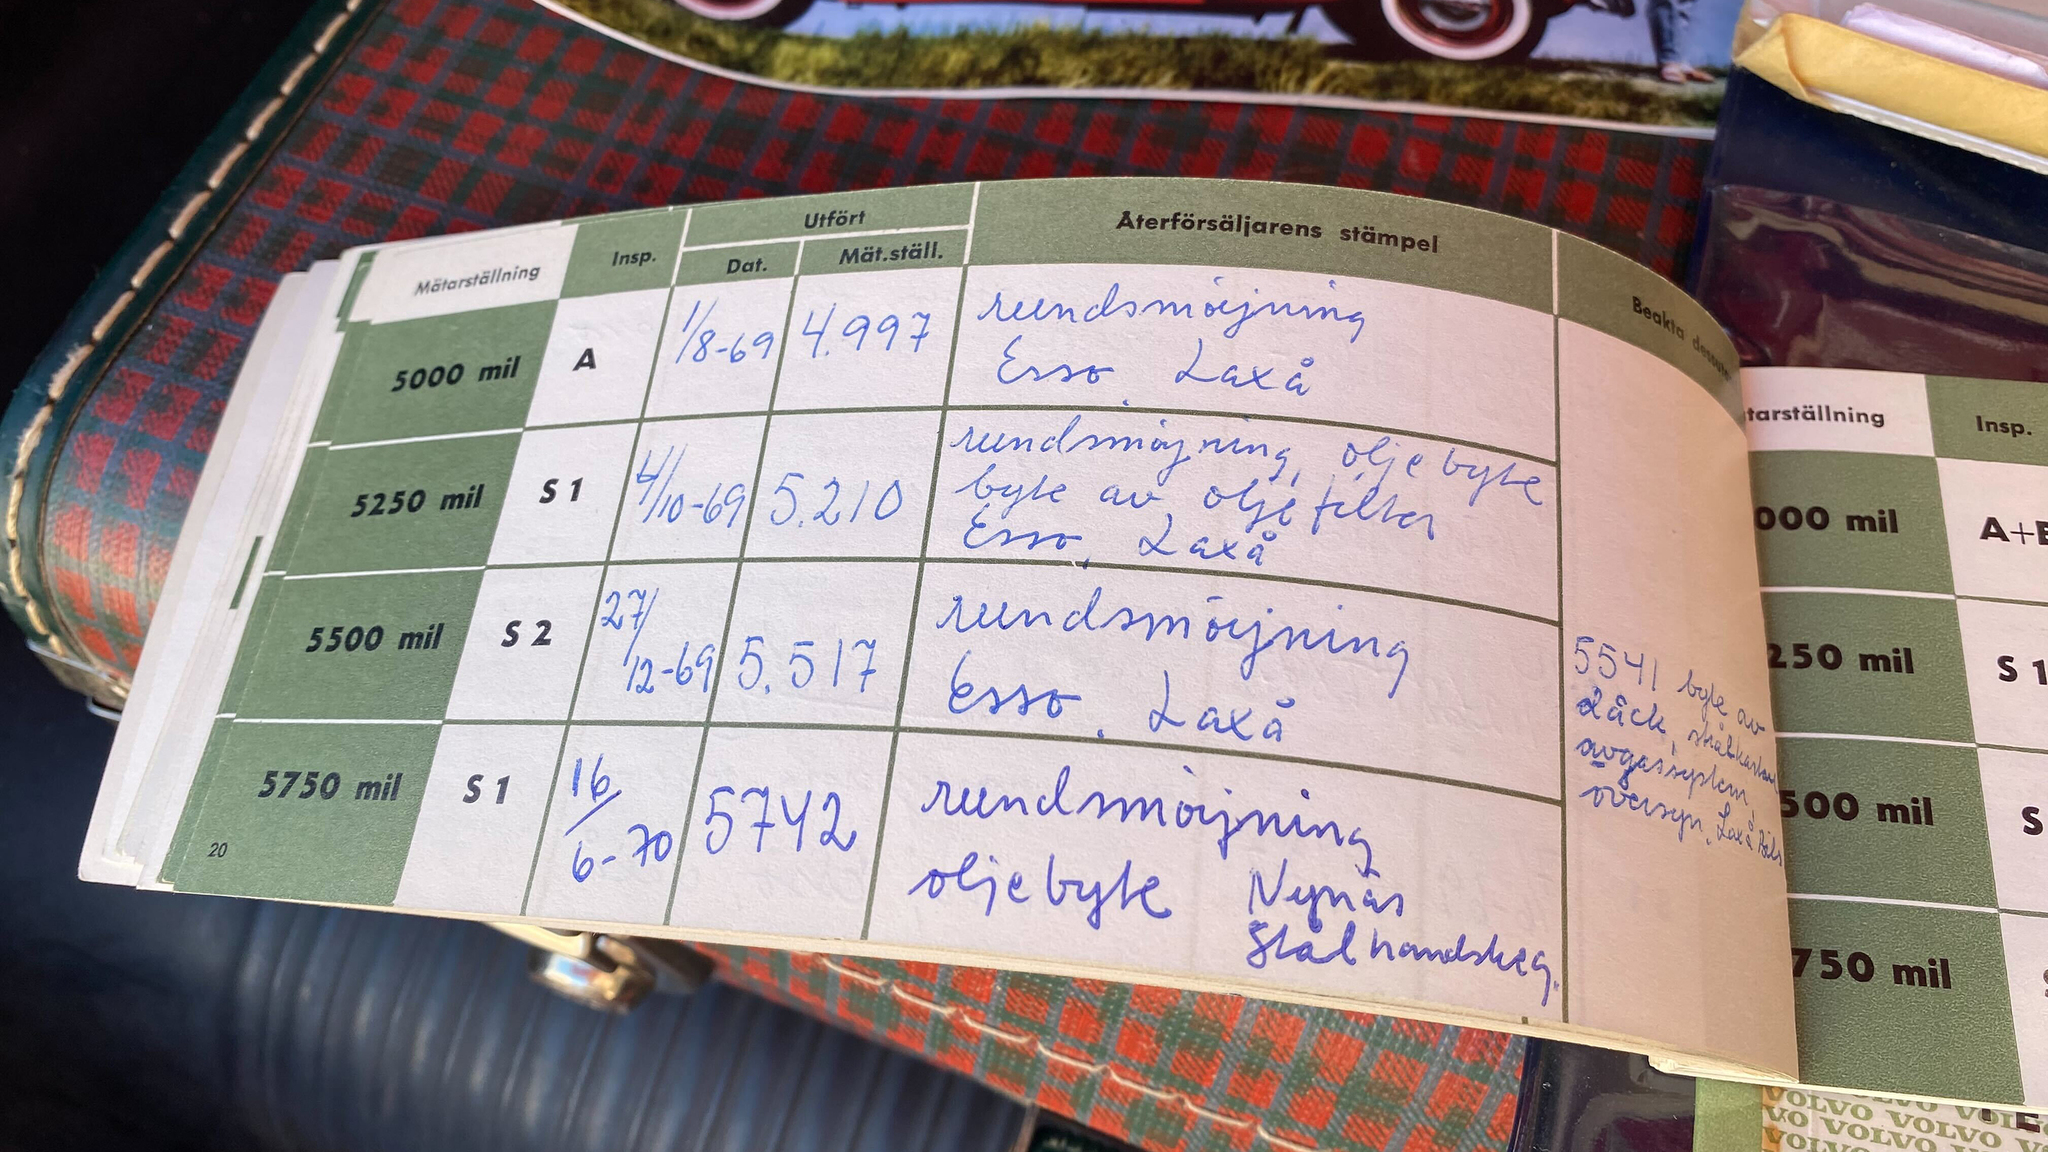 Utfört
Återförsäljarens stämpel
Mätarställning
Insp.
Dat.
Mät.ställ.
Beakta dessutom
5000 mil
A
1/8-69
4.997
rundsmörjning
Esso, Laxå
5250 mil
S 1
4/10-69
5.210
rundsmörjning, oljebyte
byte av oljefilter
Esso, Laxå
5500 mil
S 2
27/12-69
5.517
rundsmörjning
Esso, Laxå
5541 byte av
avgassystem,
översyn, Laxå
5750 mil
S 1
16/6-70
5742
rundsmörjning
oljebyte Nynäs
Stålhandskeg.
20
tarställning
Insp.
000 mil
A+B
250 mil
S 1
500 mil
S
750 mil
S
VOLVO VOLVO VOL
VO VOLVO VOLVO
VOLVO VOLVO